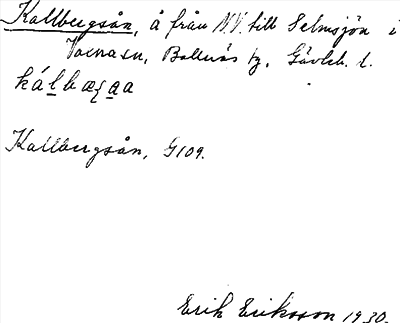 Kallbergsån, å från N.V. till Selmsjön i
Bollnäs tg, Gävleb. l.
Kallbergsån, G109.
Erik Eriksson 1930.